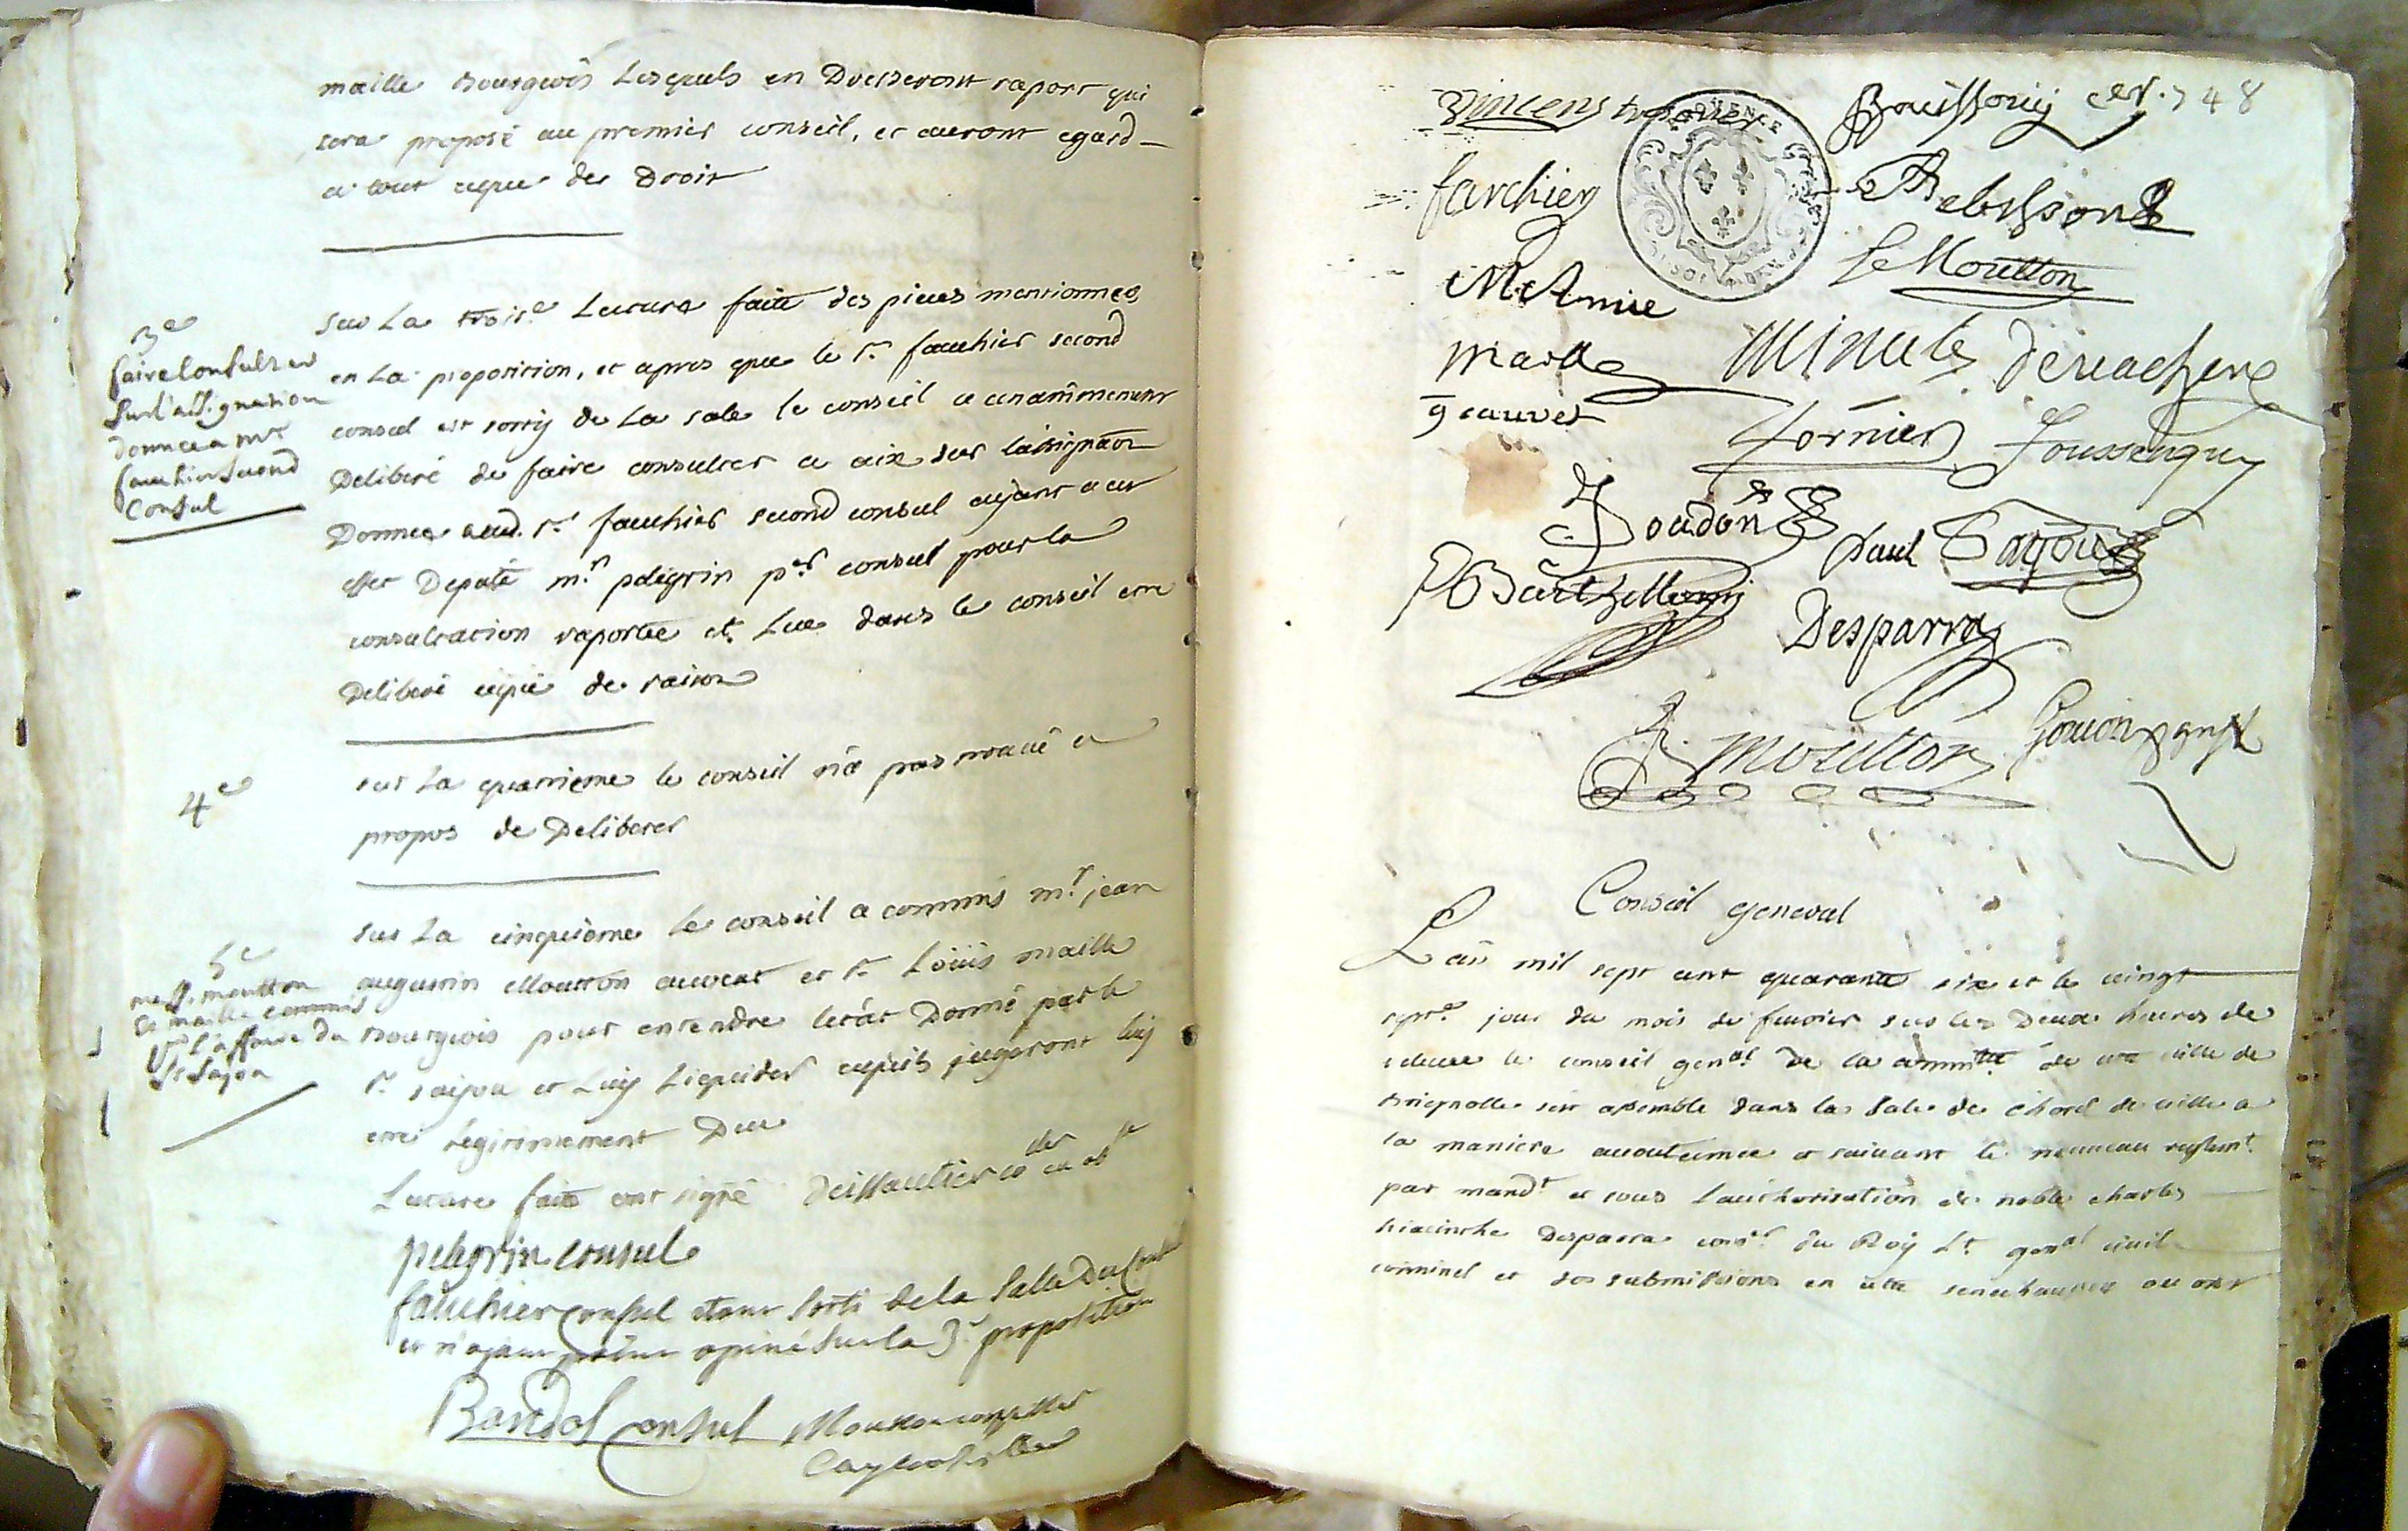 maille bourgeois Lesquels en Dresseront raport qui
sera proposé au premier conseil, et auront egard
a tout ce que de Droit
3e
faire Consulter
sur l'assignation
donnée a mr
fauchier second
Consul
sur La trois.e Lecture faite des pieces mentionnées
en La proposition, et apres que le sr fauchier second
consul est sorty de La sale le conseil a unanimement
Deliberé de faire consulter a aix sur l'assignaon
Donnée aud. sr fauchier second consul ayant a cet
effet Deputé mr. pelegrin per consul pour la
consultation raportée et Lue dans le conseil etre
Deliberé ce que de raison
4e
sur La quatrieme le conseil n'a pas trouvé a
propos de Deliberer
5e
me J. moutton
sr maille commis
l'affaire du
sr Sajou
sur La cinquieme le conseil a commis mr. jean
augustin Moutton avocat et sr Loüis maille
bourgeois pour entendre l'etat Donné par le
sr. sajou et Luy Liquider ce qu'ils jugeront luy
etre Legitimement Deu
Lecture faite ont signé
pelegrin Consul
fauchier Consul etant sorti de la Salle du
et n'ayant point opiné sur la 3e proposition
Bandol Consul
Vincens tresorier Bouissony 748
fauchier
Le Moutton
M Amic
maille Minuti
gauvet
fornier
Boudon
Paul Sajou
Barthellemy
Desparra
Moutton
Conseil general
L'an mil sept cent quarante six et le vingt
sept.e jour du mois de fevrier sur les Deux heures de
releveé le conseil gen.al de la commté de cette ville de
brignolle s'est assemblé dans la Sale de l'hotel de ville a
la maniere accoutumeé et suivant le nouveau reglemt.
par mandt et sous l'authorisation de noble charles
hiacinthe Desparra cons.r du Roy Lt gen.al civil
criminel et des submissions en cette senechaussée ou ont